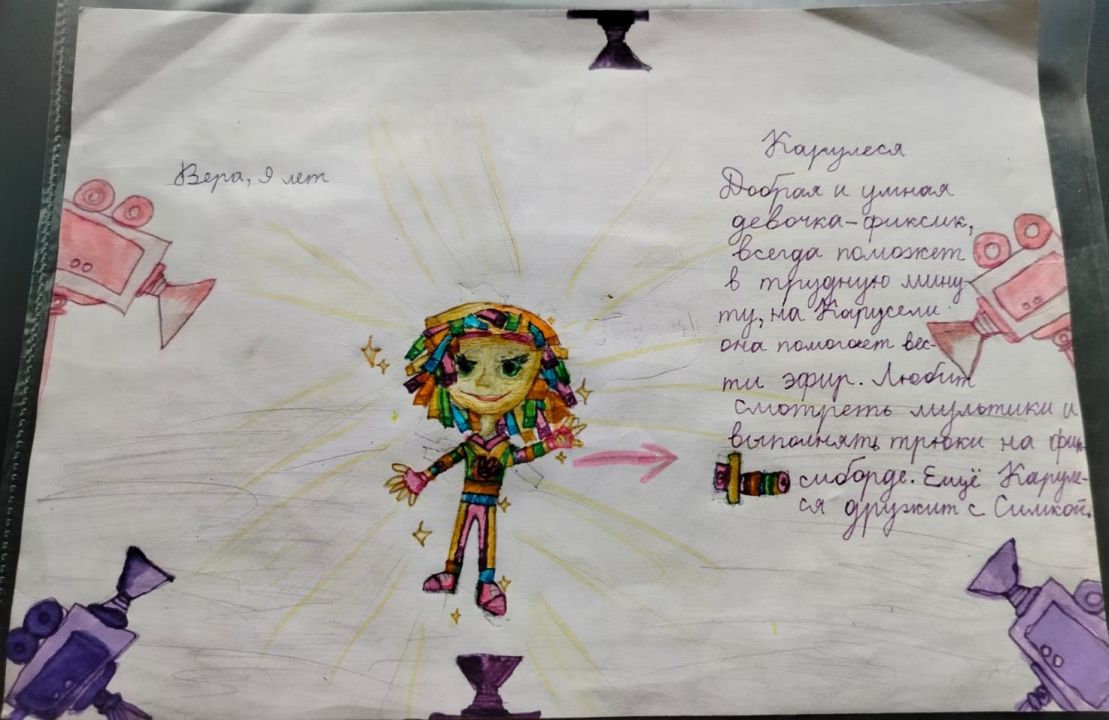 Вера, 9 лет
Карулеся
Добрая и умная
девочка-фиксик,
всегда поможет
в трудную мину-
ту, на Карусели
она помогает вес-
ти эфир. Любит
смотреть мультики и
выполнять трюки на фик-
сиборде. Ещё Каруле-
ся дружит с Симкой.